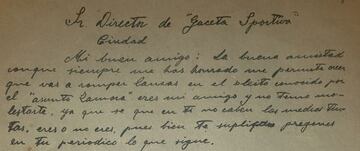 Sr Director de "Gaceta Sportiva"
Ciudad
Mi buen amigo: La buena amistad
conque siempre me has honrado me permite creer
que vas a romper lanzas en el pleito conocido por
el "asunto Zamora" eres mi amigo y no temo mo-
lestarte, ya que se que en ti no caben las medias tin-
tas, eres o no eres, pues bien, te suplico pregones
en tu periodico lo que sigue.